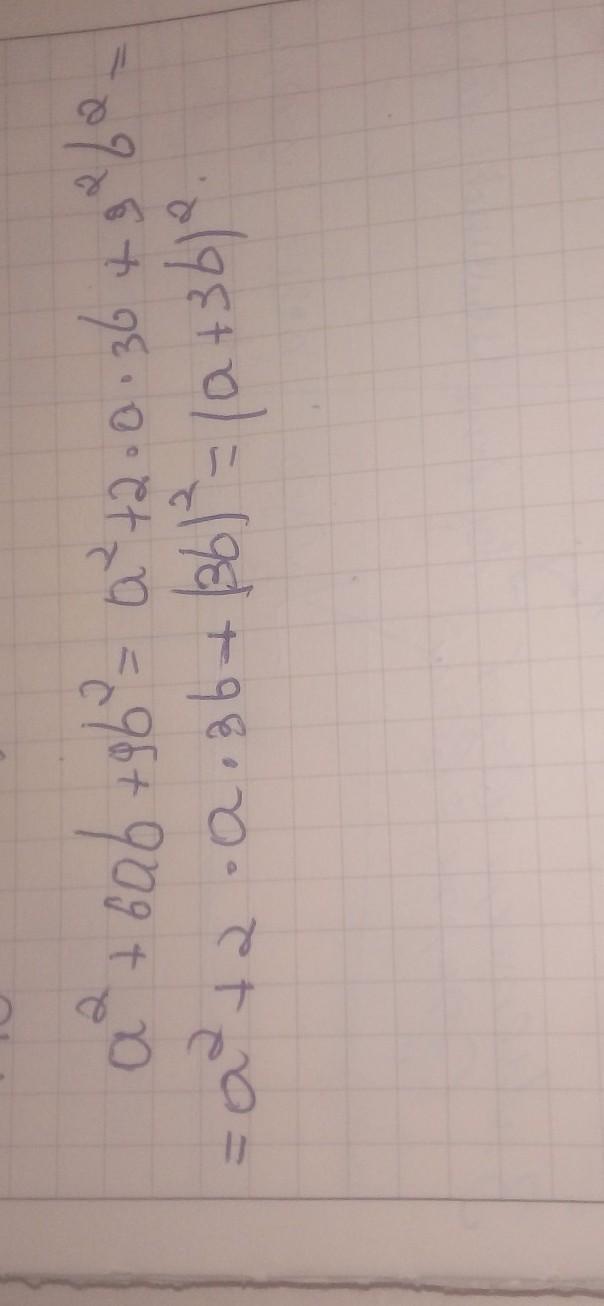 a² + 6ab + 9b² = a² + 2·a·3b + 3²b² =
= a² + 2·a·3b + (3b)² = (a+3b)².